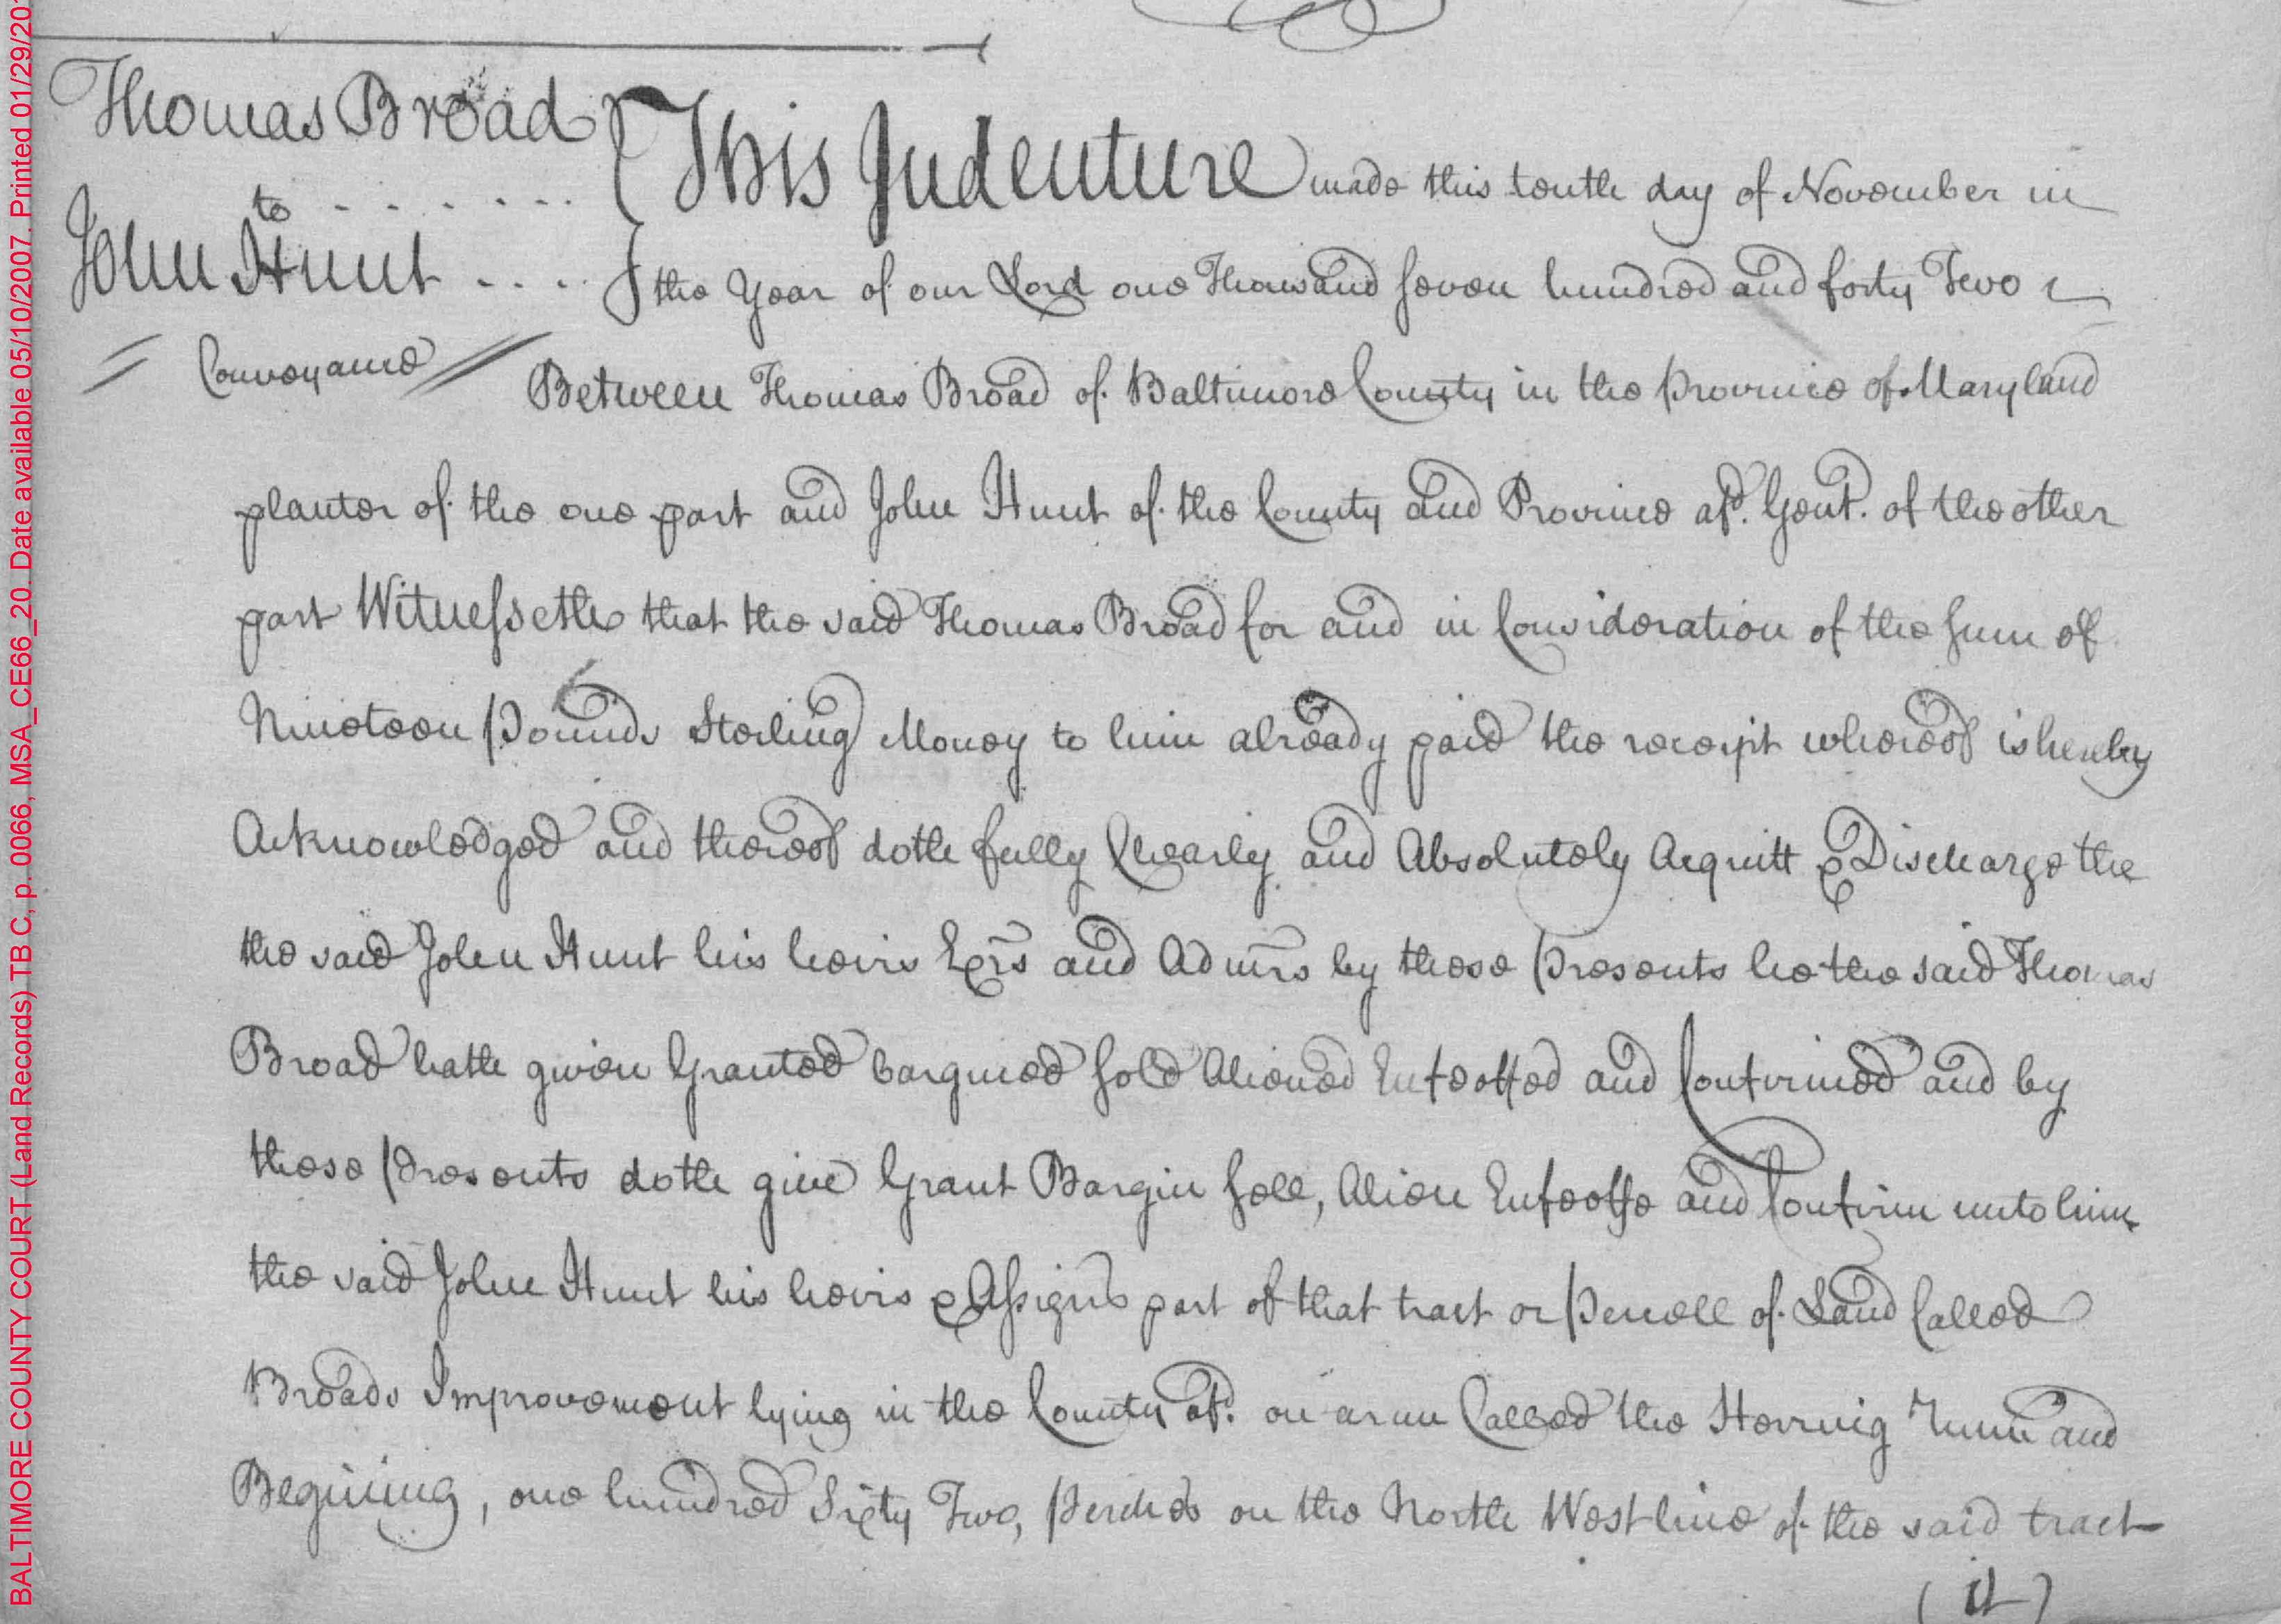 BALTIMORE COUNTY COURT (Land Records) TB C, p. 0066, MSA_CE66_20. Date available 05/10/2007. Printed 01/29/20
Thomas Broad
to
John Hunt
Conveyance
This Indenture made this tenth day of November in
the Year of our Lord one Thousand seven hundred and forty Two
Between Thomas Broad of Baltimore County in the Province of Maryland
planter of the one part and John Hunt of the County and Province afd. Gent. of the other
part Witnesseth that the said Thomas Broad for and in Consideration of the sum of
Nineteen Pounds Sterling Money to him already paid the receipt whereof is hereby
Acknowledged and thereof doth fully Clearly and Absolutely Acquitt & Discharge the
the said John Hunt his heirs Exrs and Admrs by these Presents he the said Thomas
Broad hath given Granted bargined sold Aliened Enfeoffed and Confirmed and by
these Presents doth give Grant Bargin sell, Alien Enfeoffe and Confirm unto him
the said John Hunt his heirs & Assigns part of that tract or Percell of Land Called
Broads Improvement lying in the County afd. on a run Called the Herring runn and
Begining, one hundred Sixty Two, Perches on the North West line of the said tract
(it)